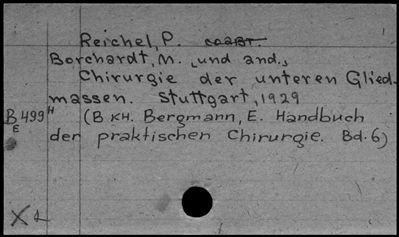 Reichel, P. соавт.
Borchardt, M., und and.,
Chirurgie der unteren Glied-
massen. Stuttgart, 1929
B 499 H (В кн. Bergmann, E. Handbuch
E der praktischen Chirurgie. Bd. 6)